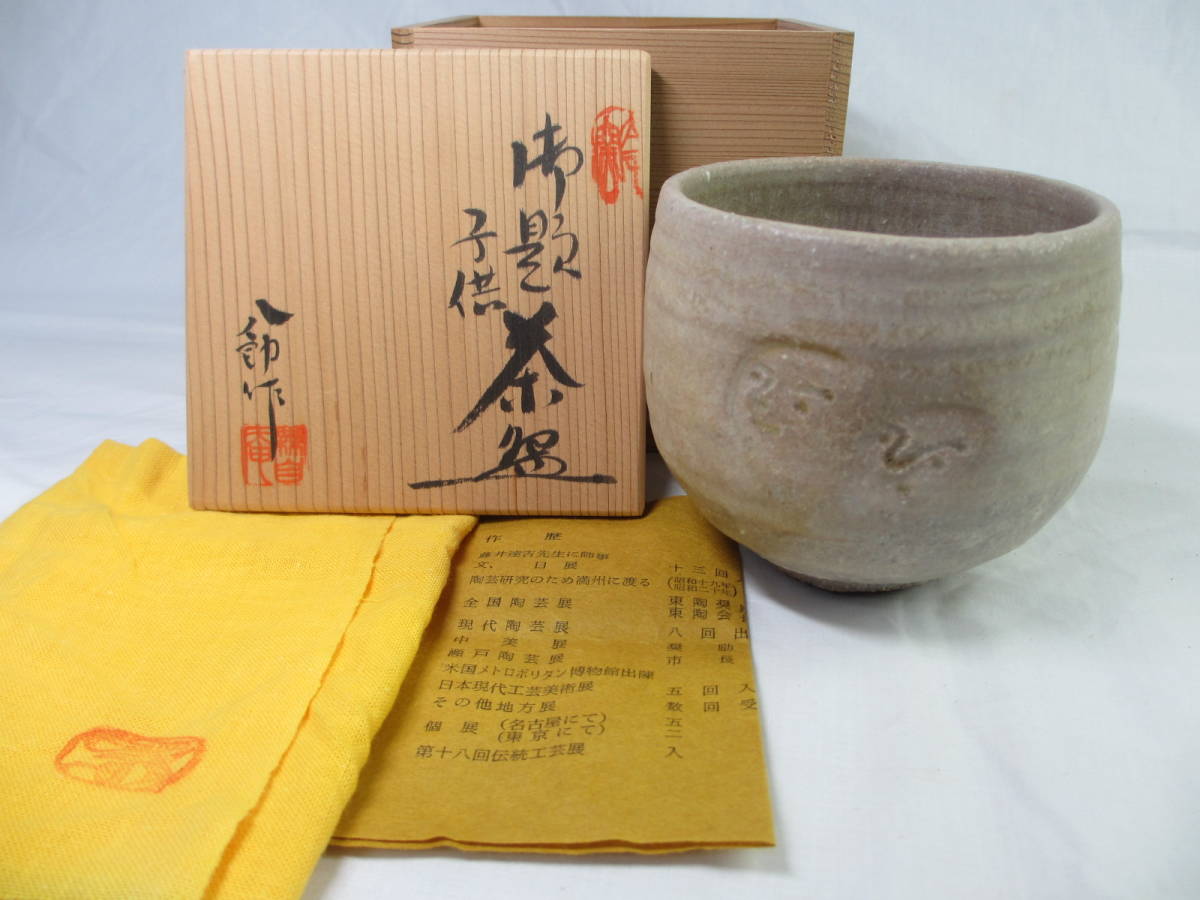 御題
子供
茶盌
八勳作
作歴
藤井達吉先生に師事
文、日展 十三回入
陶芸研究のため満州に渡る (昭和十九年 昭和二十年)
全国陶芸展 東陶奨 東陶会
現代陶芸展 八回出
中美展 奨励
瀬戸陶芸展 市長
米国メトロポリタン博物館出陳
日本現代工芸美術展 五回入
その他地方展 数回受
個展 (名古屋にて) 五
(東京にて) 二
第十八回伝統工芸展 入